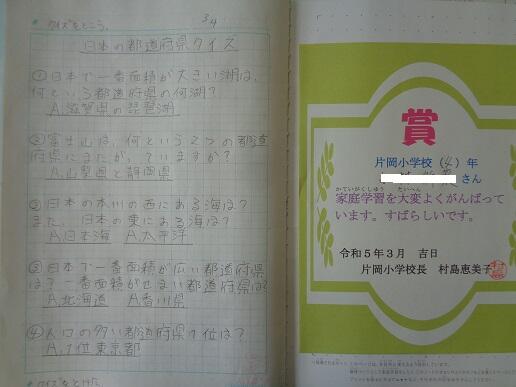 クイズをとこう。
3/4
日本の都道府県クイズ
①日本で一番面積が大きい湖は、
何という都道府県の何湖?
A.滋賀県の琵琶湖
②富士山は、何という2つの都道
府県にまたがっていますか?
A.山梨県と静岡県
③日本の本州の西にある海は?
また、日本の東にある海は?
A.日本海 A.太平洋
③日本で一番面積が広い都道府県
は?一番面積がせまい都道府県は?
A.北海道 A.香川県
④人口の多い都道府県1位は?
A.1位東京都
賞
片岡小学校(4)年
さん
かていがくしゅう たいへん
家庭学習を大変よくがんばって
います。すばらしいです。
令和5年3月 吉日
片岡小学校長 村島恵美子